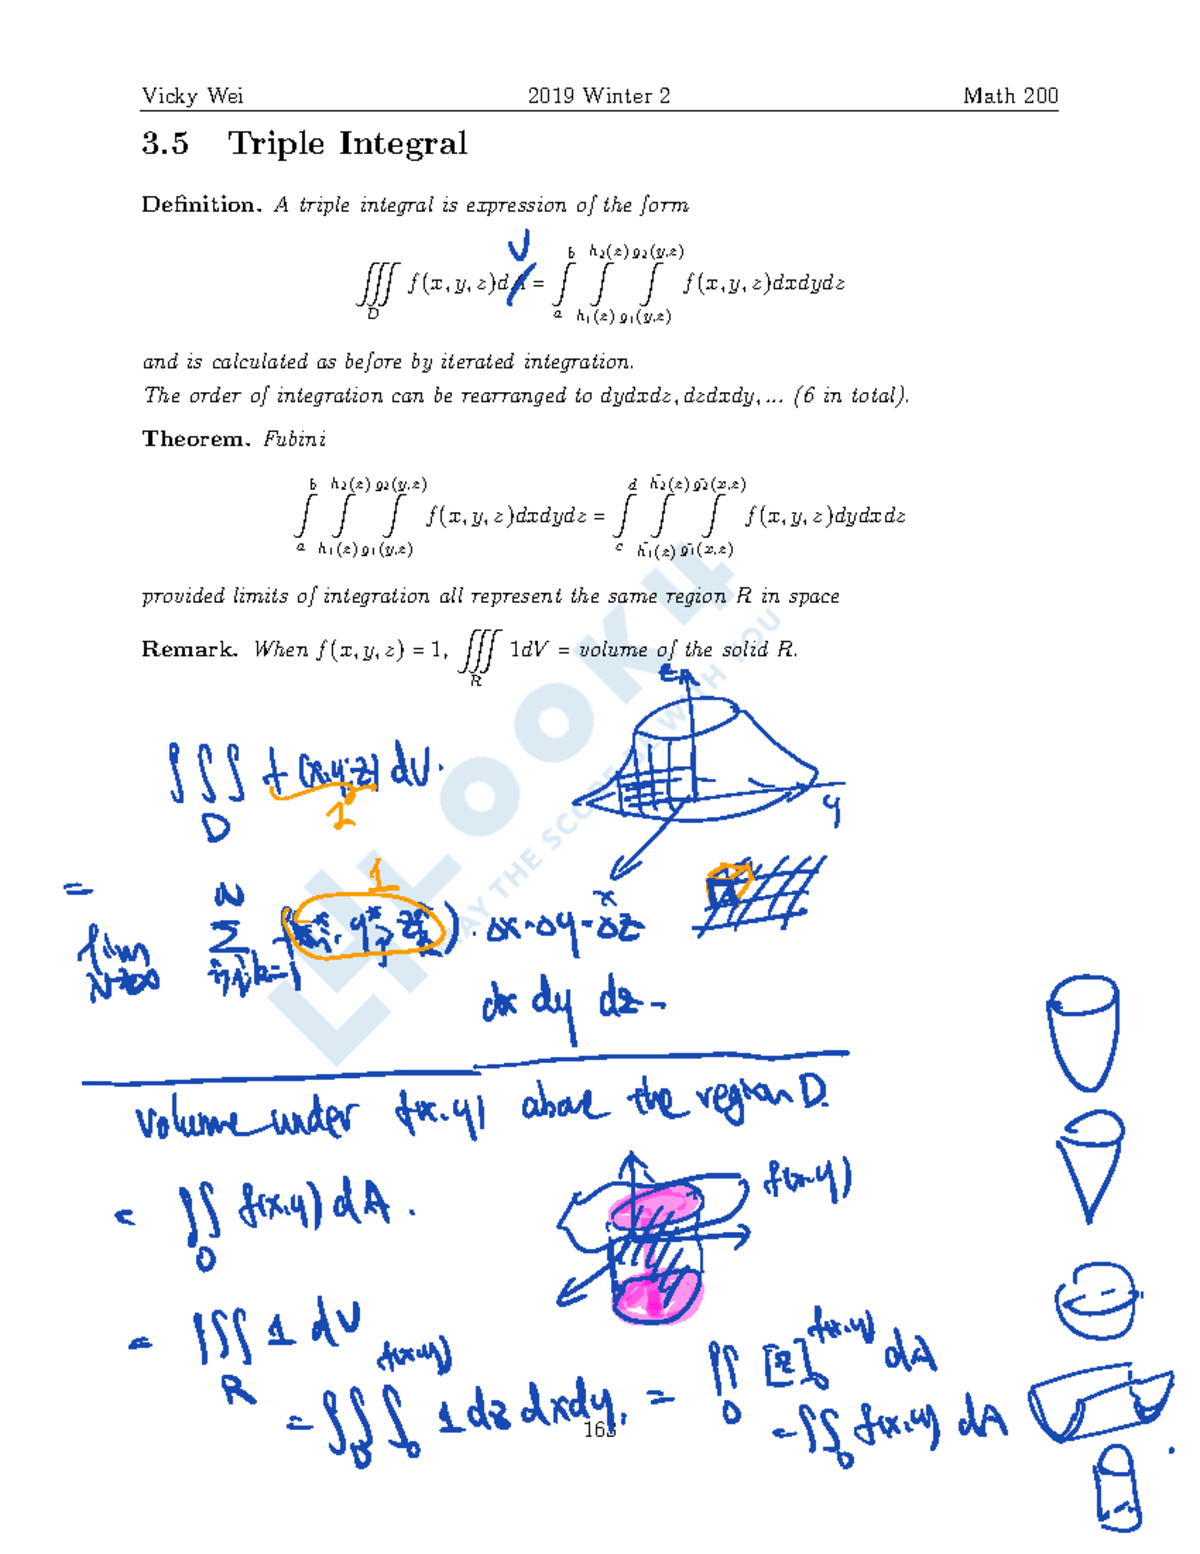 Vicky Wei 2019 Winter 2 Math 200
3.5 Triple Integral
Definition. A triple integral is expression of the form
∭_D f(x, y, z)dA = ∫_a^b ∫_{h₁(z)}^{h₂(z)} ∫_{g₁(y,z)}^{g₂(y,z)} f(x, y, z)dxdydz
V
and is calculated as before by iterated integration.
The order of integration can be rearranged to dydxdz, dzdxdy, ... (6 in total).
Theorem. Fubini
∫_a^b ∫_{h₁(z)}^{h₂(z)} ∫_{g₁(y,z)}^{g₂(y,z)} f(x, y, z)dxdydz = ∫_c^d ∫_{h̃₁(z)}^{h̃₂(z)} ∫_{g̃₁(x,z)}^{g̃₂(x,z)} f(x, y, z)dydxdz
provided limits of integration all represent the same region R in space
Remark. When f(x, y, z) = 1, ∭_R 1dV = volume of the solid R.
z
∫∫∫_D f(x,y,z) dV.
1
y
x
1
= lim_{N→∞} Σ_{i,j,k=1}^∞ f(x_i^*, y_j^*, z_k^*) · Δx·Δy·Δz
dx dy dz
Volume under f(x,y) above the region D.
= ∬_D f(x,y) dA.
f(x,y)
= ∭_R 1 dV
= ∬_D ∫_0^{f(x,y)} 1 dz dxdy. = ∬_D [z]_0^{f(x,y)} dA
= ∬_D f(x,y) dA
163
4LOOK4
PLAY THE SCOPE BE WITH YOU